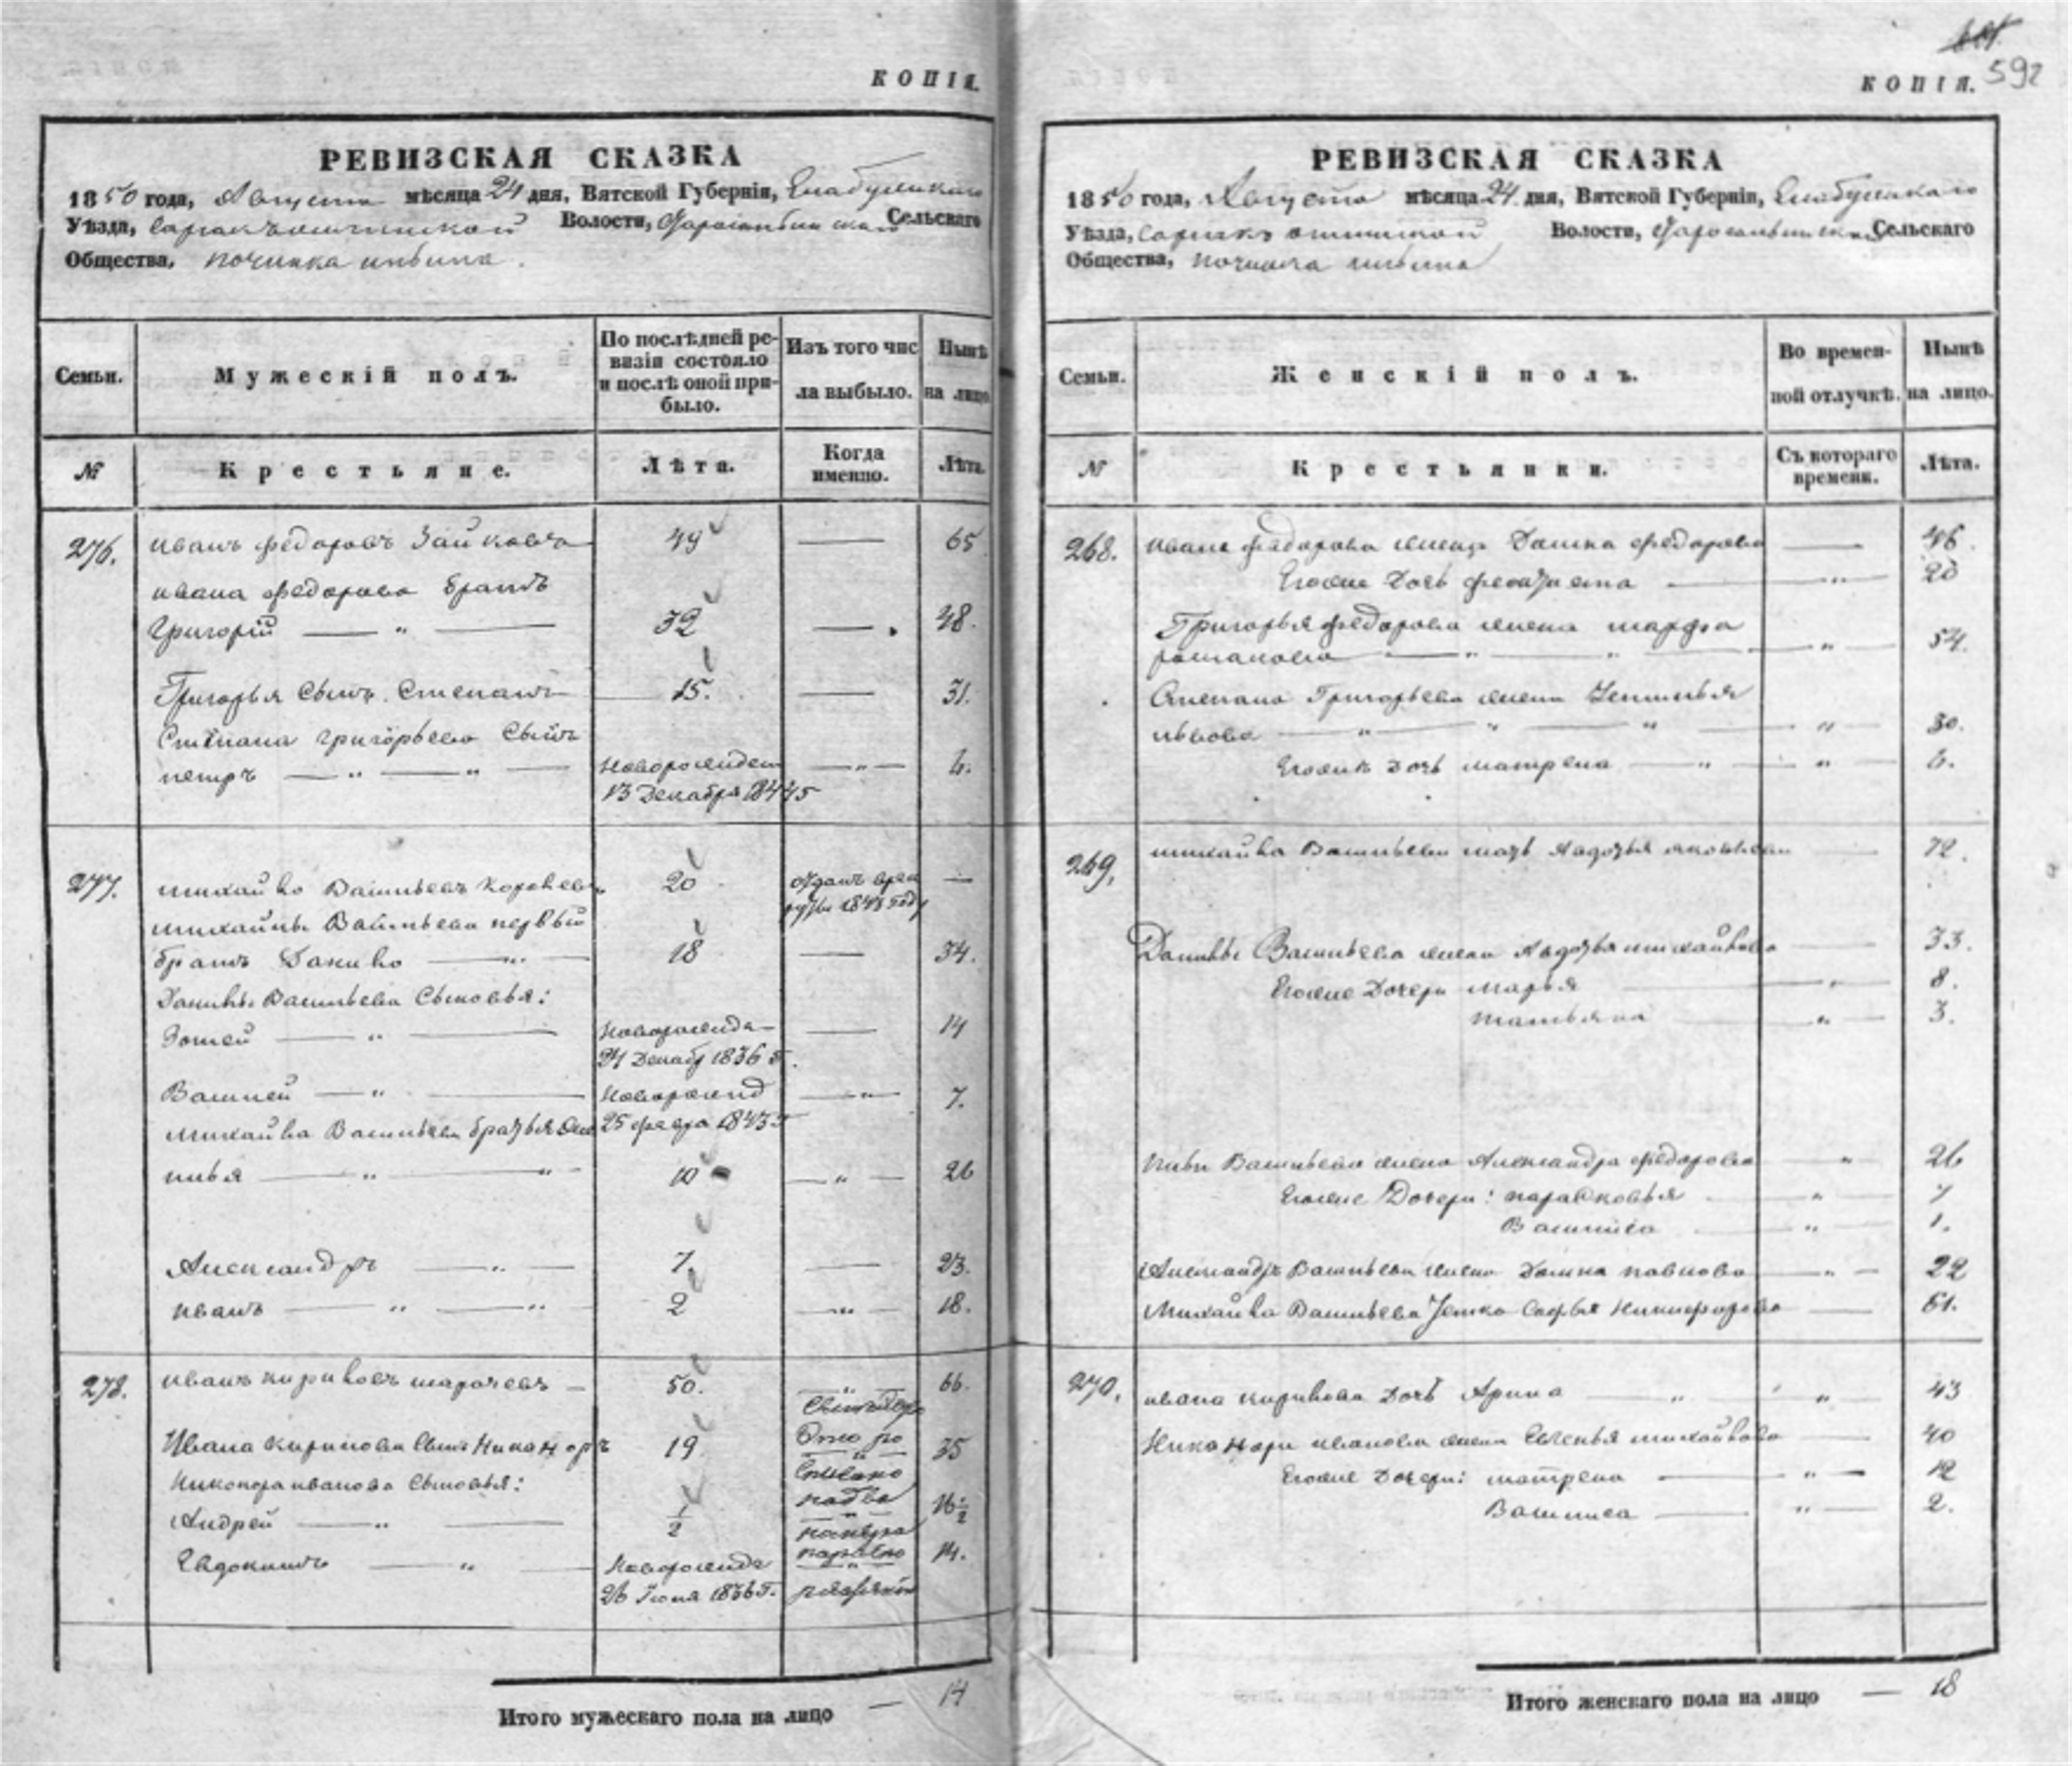 КОПІЯ.
РЕВИЗСКАЯ СКАЗКА
1850 года, Августа мѣсяца 24 дня, Вятской Губерніи, Елабужскаго
Уѣзда, Волости, Сельскаго
Общества, починка
Семьи.
Мужескій полъ.
По послѣдней ре-
визіи состояло
и послѣ оной при-
было.
Изъ того чис
ла выбыло.
Нынѣ
на лицо
№
Крестьяне.
Лѣта.
Когда
именно.
Лѣта.
276. иванъ федоровъ Зайковъ 49 — 65
ивана федорова братъ
григорій — " — 32 — 48.
Григорья Сынъ Степанъ — 15. — 31.
Степана григорьева Сынъ
петръ — " — " — Новорожден — " — 6.
13 Декабря 1844
277. михайло Васильевъ 20 отданъ —
1843 году
михайлы Васильева первый
братъ Данило — " — 18 — 34.
Данилы Васильева Сыновья:
Зотей — " — Новорожде — 14
24 Декабр 1836
Василей — " — Новорожд — " — 7.
михайла Васильева братья 25 февра 1843
илья — " — " 10 — " — 26
Александръ — " — 7. — 23.
иванъ — " — " 2 — " — 18.
278. иванъ кириловъ — 50. 66.
Ивана Кирилова Сынъ Никаноръ 19. 35
Никонора иванова Сыновья:
Андрей — " — 1/2 16 1/2
Евдокимъ — " — Новорожде 14.
26 Іюня 1836 г.
Итого мужескаго пола на лицо — 14
592
КОПІЯ.
РЕВИЗСКАЯ СКАЗКА
1850 года, Августа мѣсяца 24 дня, Вятской Губерніи, Елабужскаго
Уѣзда, Волости, Сельскаго
Общества, починка
Семьи.
Женскій полъ.
Во времен-
ной отлучкѣ.
Нынѣ
на лицо.
№
Крестьянки.
Съ котораго
времени.
Лѣта.
268. ивана федорова жена Домна федорова — 46.
Егоже Дочь — " — 20
Григорья федорова жена марфа
романова — " — " — " — 54.
Степана Григорьева жена
львова — " — " — " — " — 30.
Егоже дочь матрена — " — " — 6.
269. михайла Васильева мать Авдотья яковлева — 72.
Данилы Васильева жена Авдотья михайлова — 33.
Егоже Дочери марья — " — 8.
татьяна — " — 3.
ильи Васильева жена Александра федорова — " — 26
Егоже Дочери: парасковья — " — 7
Василиса — " — 1.
Александръ Васильева жена Домна павлова — " — 22
Михайла Васильева Тетка Софья Никифорова — 61.
270. ивана кирилова Дочь Арина — " — " — 43
Никанора иванова жена Евгенья михайлова — 40
Егоже Дочери: матрена — " — 12
Василиса — " — 2.
Итого женскаго пола на лицо — 18